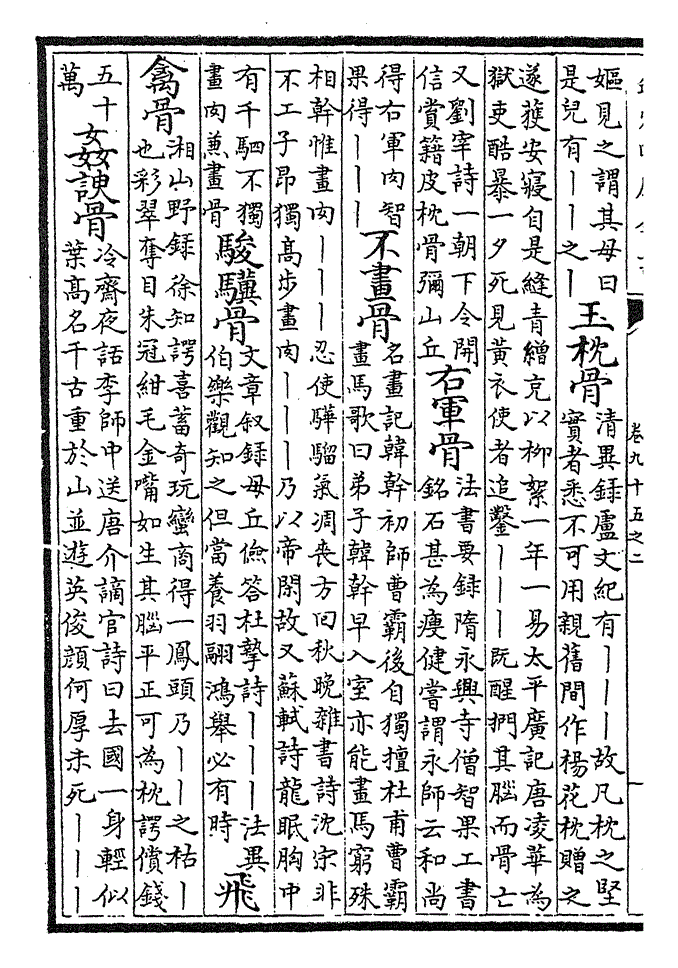 卷九十五之二
嫗見之謂其母曰
是兒有丨丨之丨
玉枕骨
清異録盧文紀有丨丨丨故凡枕之堅
實者悉不可用親舊間作楊花枕贈之
遂獲安寢自是縫青繒充以柳絮一年一易太平廣記唐凌華為
獄吏酷暴一夕死見黃衣使者追鑿丨丨丨既醒捫其腦而骨亡
又劉宰詩一朝下令開
信賞籍皮枕骨彌山丘
右軍骨
法書要録隋永興寺僧智果工書
銘石甚為瘦健嘗謂永師云和尚
得右軍肉智
果得丨丨丨
不畫骨
名畫記韓幹初師曹霸後自獨擅杜甫曹霸
畫馬歌曰弟子韓幹早入室亦能畫馬窮殊
相幹惟畫肉丨丨丨忍使驊騮氣凋喪方回秋晚雜書詩沈宗非
不工子昂獨高步畫肉丨丨丨乃以帝閑故又蘇軾詩龍眠胸中
有千駟不獨
畫肉兼畫骨
駿驥骨
文章叙録毋丘儉答杜摯詩丨丨丨法異
伯樂觀知之但當養羽翮鴻舉必有時
飛
禽骨
湘山野録徐知諤喜蓄奇玩蠻商得一鳳頭乃丨丨之枯丨
也彩翠奪目朱冠紺毛金嘴如生其腦平正可為枕諤償錢
五十
萬
姦諛骨
冷齋夜話李師中送唐介謫官詩曰去國一身輕似
葉高名千古重於山並遊英俊顔何厚未死丨丨丨